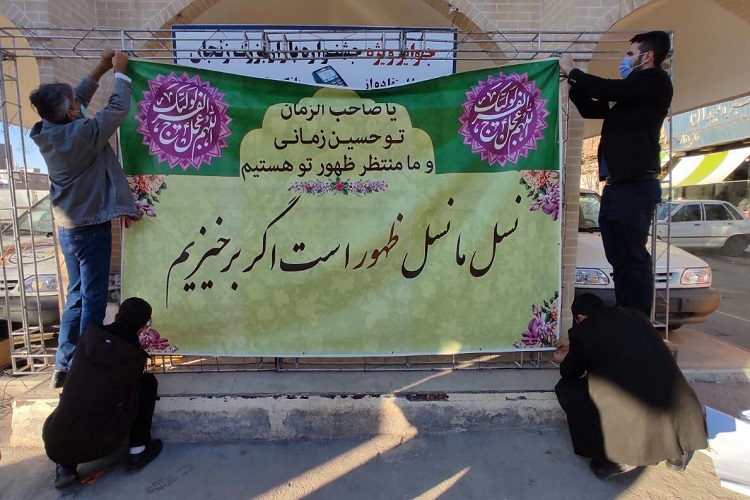 جوایز ویژه جشنواره بازار بزرگ زنجان
یا صاحب الزمان
تو حسین زمانی
و ما منتظر ظهور تو هستیم
اللهم عجل لولیک الفرج
اللهم عجل لولیک الفرج
نسل ما نسل ظهور است اگر برخیزیم